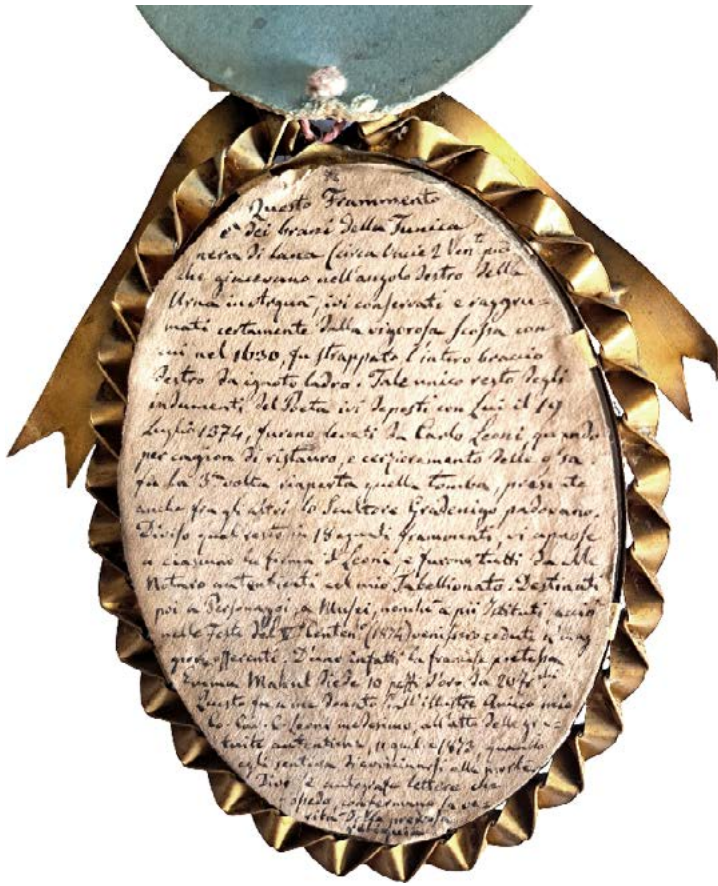 Questo Frammento
è dei brani della Tunica
nera di lana (circa
che giacevano nell'angolo destro della
Urna inargua, ivi conservati e raggru-
mati certamente dalla vigorosa scossa con
cui nel 1630, fu strappato l'intero braccio
destro da ignoto ladro. Tale unico resto degli
indumenti del Poeta ivi deposti con Lui il 19
Luglio 1374, furono levati da Carlo Leoni, quando
per cagion di ristauro, e cerzioramento delle ossa
fu la 3ª volta riaperta quella tomba, presente
anche fra gli altri lo Scultore Gradenigo padovano.
Diviso quel resto in 18 eguali frammenti, vi appose
a ciascuno la firma il Leoni, e furono tutti da Me
Notaro autenticati col mio Tabellionato. Destinati
poi a Personaggi, a Musei, nonchè a più Istituti, acciò
nelle Feste del Vº Centenº (1874) venissero cedute a' mag
giori offerenti. D'uno infatti la francese poetessa
Emma Mahul diede 10 pezzi d'oro da 20 frchi
Questo fu a me donato dall'illustre Amico mio
Co. Cav. C. Leoni medesimo, all'atto delle gra-
tuite autentiche, 11 aprile 1873, quando
egli sentiva di avvicinarsi alla morte.
Divo e autografe lettere che
possedo, confermano la ve-
rità della preziosa
reliquia